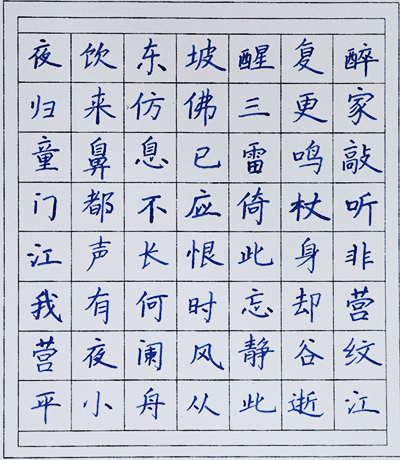 夜饮东坡醒复醉
归来仿佛三更家
童鼻息已雷鸣敲
门都不应倚杖听
江声长恨此身非
我有何时忘却营
营夜阑风静谷纹
平小舟从此逝江